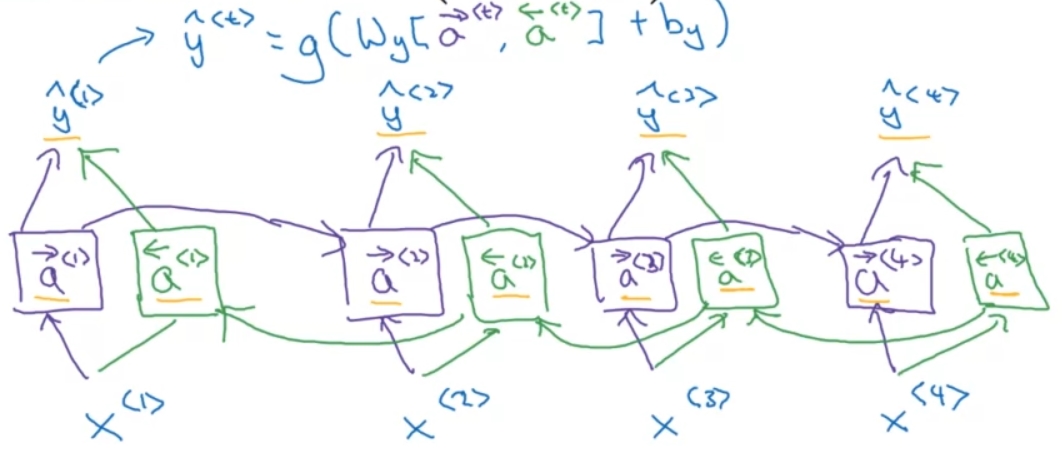 ŷ<t> = g(Wy[→a<t>, ←a<t>] + by)
ŷ<1> ŷ<2> ŷ<3> ŷ<4>
→a<1> ←a<1> →a<2> ←a<2> →a<3> ←a<3> →a<4> ←a<4>
x<1> x<2> x<3> x<4>